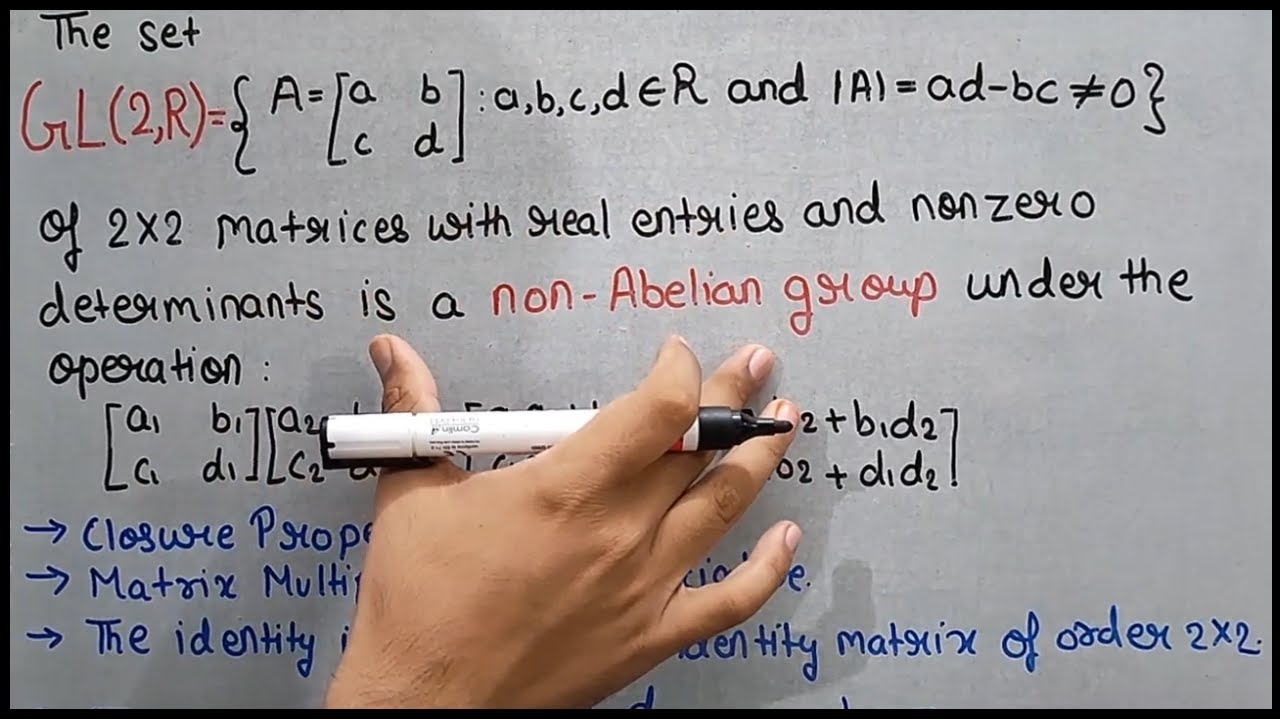 The set
GL(2,R)={ A=[a b : a,b,c,d∈R and |A|=ad-bc≠0}
c d]
of 2×2 matrices with real entries and nonzero
determinants is a non-Abelian group under the
operation:
[a₁ b₁][a₂ ₂+b₁d₂]
c₁ d₁ c₂ + d₁d₂
→ Closure
→ Matrix
→ The identity identity matrix of order 2×2.
Camlin